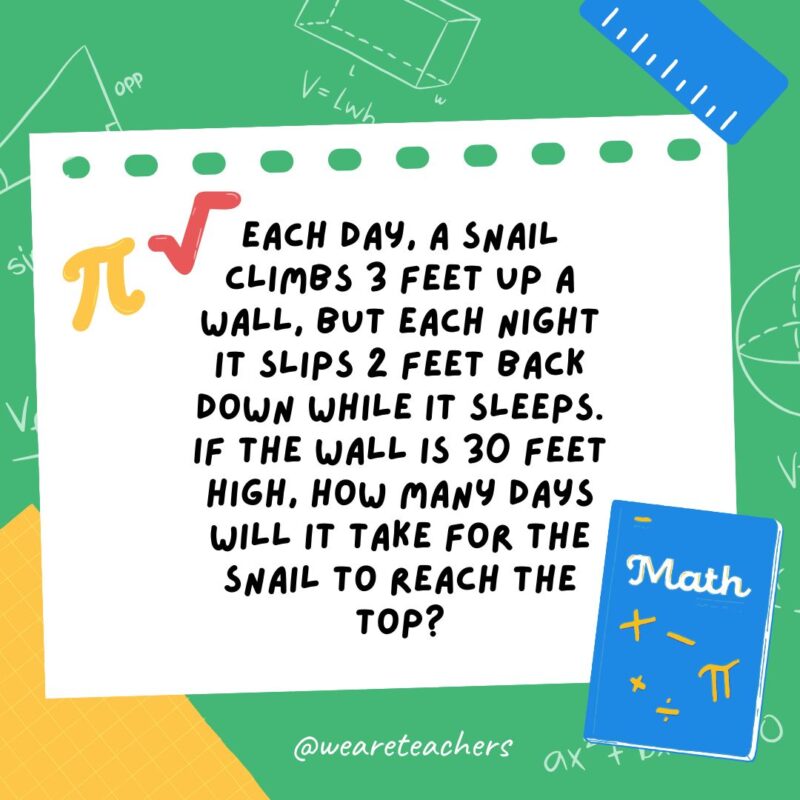 OPP
L
W
V = Lwh
π √
EACH DAY, A SNAIL
CLIMBS 3 FEET UP A
WALL, BUT EACH NIGHT
IT SLIPS 2 FEET BACK
DOWN WHILE IT SLEEPS.
IF THE WALL IS 30 FEET
HIGH, HOW MANY DAYS
WILL IT TAKE FOR THE
SNAIL TO REACH THE
TOP?
Math
+ −
× ÷ π
@weareteachers